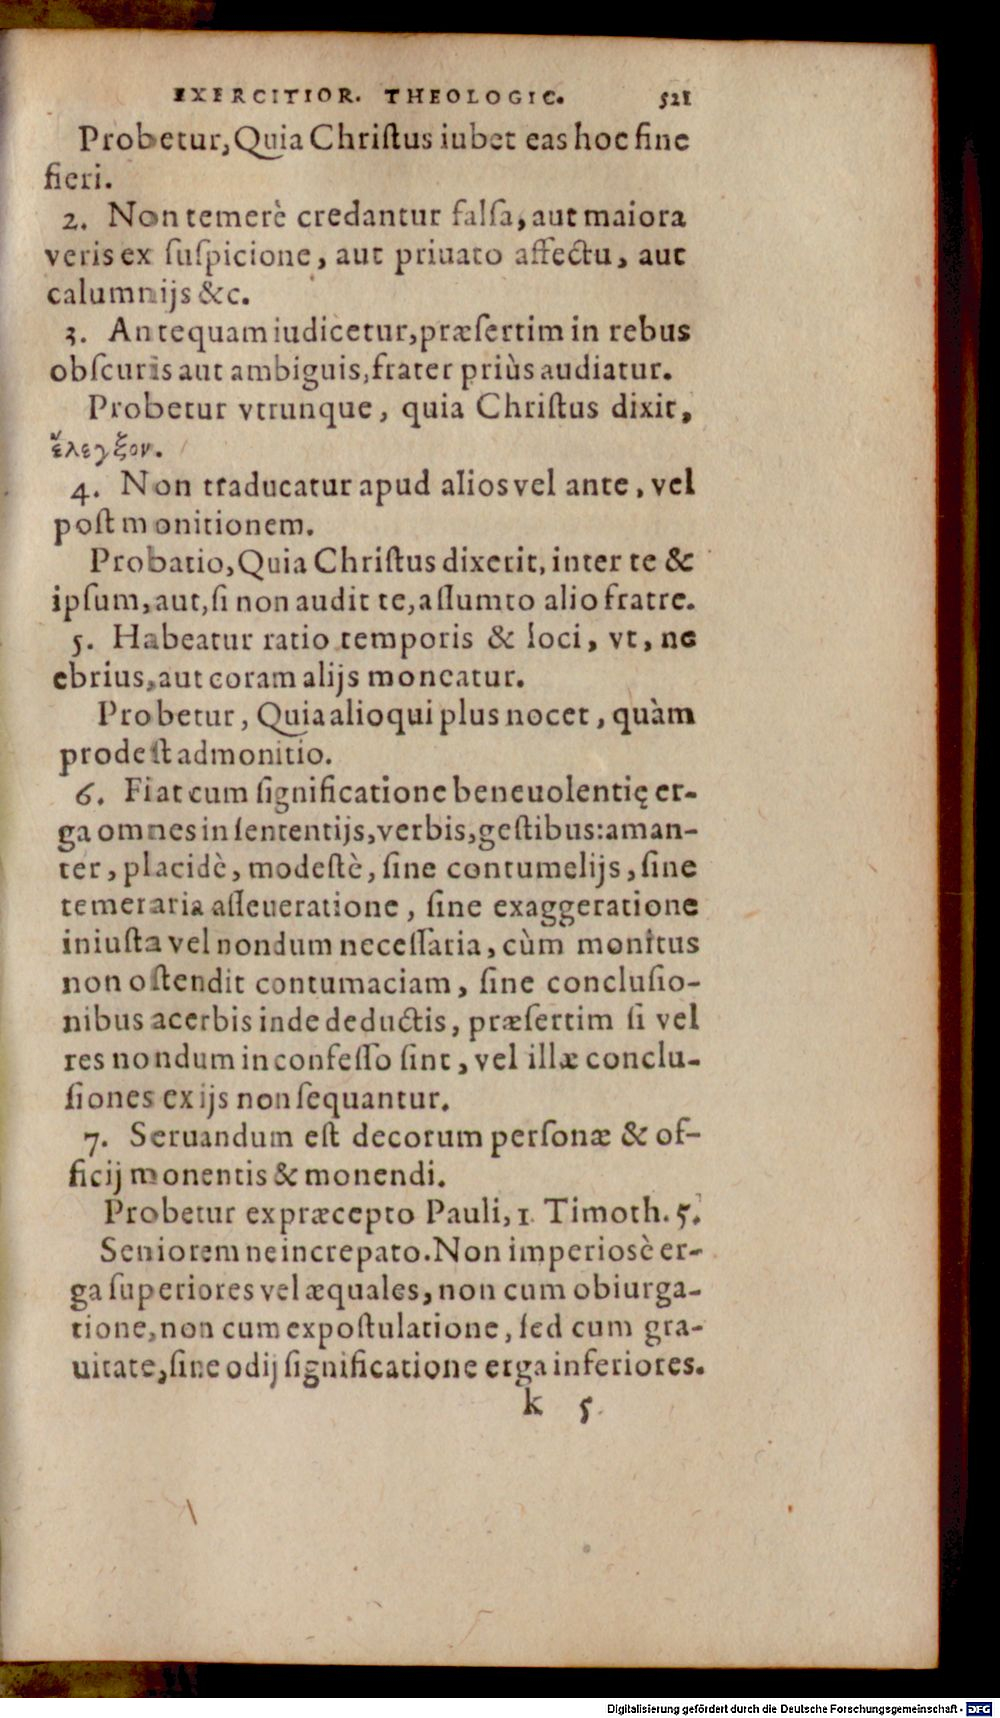 EXERCITIOR. THEOLOGIC. 521
Probetur, Quia Chriſtus iubet eas hoc fine
fieri.
2. Non temerè credantur falſa, aut maiora
veris ex ſuſpicione, aut priuato affectu, aut
calumnijs &c.
3. Antequam iudicetur, præſertim in rebus
obſcuris aut ambiguis, frater priùs audiatur.
Probetur vtrunque, quia Chriſtus dixit,
ἔλεγξον.
4. Non traducatur apud alios vel ante, vel
poſt monitionem.
Probatio, Quia Chriſtus dixerit, inter te &
ipſum, aut, ſi non audit te, aſſumto alio fratre.
5. Habeatur ratio temporis & loci, vt, ne
ebrius, aut coram alijs moneatur.
Probetur, Quia alioqui plus nocet, quàm
prodeſt admonitio.
6. Fiat cum ſignificatione beneuolentię er-
ga omnes in ſententijs, verbis, geſtibus: aman-
ter, placidè, modeſtè, ſine contumelijs, ſine
temeraria aſſeueratione, ſine exaggeratione
iniuſta vel nondum neceſſaria, cùm monitus
non oſtendit contumaciam, ſine concluſio-
nibus acerbis inde deductis, præſertim ſi vel
res nondum in confeſſo ſint, vel illæ conclu-
ſiones ex ijs non ſequantur.
7. Seruandum eſt decorum perſonæ & of-
ficij monentis & monendi.
Probetur ex præcepto Pauli, 1. Timoth. 5.
Seniorem ne increpato. Non imperiosè er-
ga ſuperiores vel æquales, non cum obiurga-
tione, non cum expoſtulatione, ſed cum gra-
uitate, ſine odij ſignificatione erga inferiores.
k 5
Digitalisierung gefördert durch die Deutsche Forschungsgemeinschaft - DFG